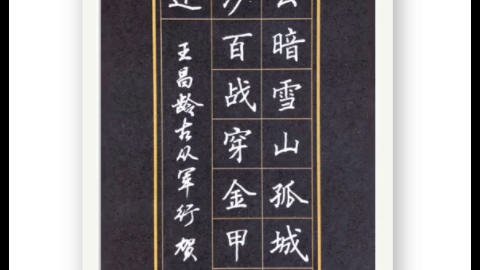 暗雪山孤城
百战穿金甲
王昌龄古从军行贺